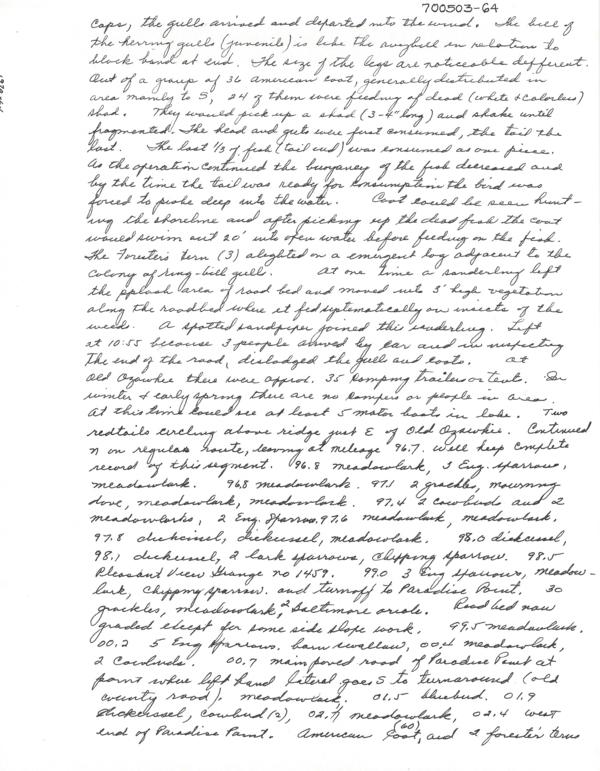 700503-64
caps, the gulls arrived and departed into the wind. The bill of
the herring gulls (juvenile) is like the ringbill in relation to
black band at end. The size of the legs are noticeable different.
Out of a group of 36 American coot, generally distributed in
area mainly to S, 24 of them were feeding of dead (white & colorless)
shad. They would pick up a shad (3-4" long) and shake until
fragmented. The head and guts were first consumed, the tail the
last. The last 1/3 of fish (tail end) was consumed as one piece.
As the operation continued the buoyancy of the fish decreased and
by the time the tail was ready for consumption the bird was
forced to probe deep into the water. Coot could be seen hunt-
ing the shoreline and after picking up the dead fish the coot
would swim out 20' into open water before feeding on the fish.
The Forester's tern (3) alighted on a emergent log adjacent to the
colony of ring-bill gulls. At one time a sanderling left
the splash area of road bed and moved into 3' high vegetation
along the roadbed where it fed systematically on insects of the
weeds. A spotted sandpiper joined this sanderling. Left
at 10:55 because 3 people arrived by car and in inspecting
the end of the road, dislodged the gulls and coots. At
Old Ozawkie there were approx. 35 camping trailers or tents. In
winter & early spring there are no campers or people in area.
At this time could see at least 5 motor boats in lake. Two
redtails circling above ridge just E of Old Ozawkie. Continued
N on regular route, leaving at mileage 96.7. Will keep complete
record of this segment. 96.8 meadowlark, 3 Eng. sparrows,
meadowlark. 96.8 meadowlarks. 97.1 2 grackles, mourning
dove, meadowlark, meadowlark. 97.4 2 cowbirds and 2
meadowlarks, 2 Eng. Sparros. 97.6 meadowlark, meadowlark.
97.8 dickcissel, dickcissel, meadowlark. 98.0 dickcissel,
98.1 dickcissel, 2 lark sparrows, Chipping sparrow. 98.5
Pleasant View Grange no 1459. 99.0 3 Eng sparrows, meadow-
lark, chipping sparrow. and turnoff to Paradise Point. 30
grackles, meadowlark, 2 Baltimore oriole. Road bed now
graded except for some side slope work. 99.5 meadowlark.
00.2 5 Eng sparrows. barn swallow, 00.4 meadowlark,
2 Cowbirds. 00.7 main paved road of Paradise Point at
point where left hand lateral goes S to turnaround (old
county road). meadowlark. 01.5 bluebird. 01.9
dickcissel, cowbird (2), 02.1 meadowlark, 02.4 west
end of Paradise Point. American Coot, (60) and 2 forester's terns